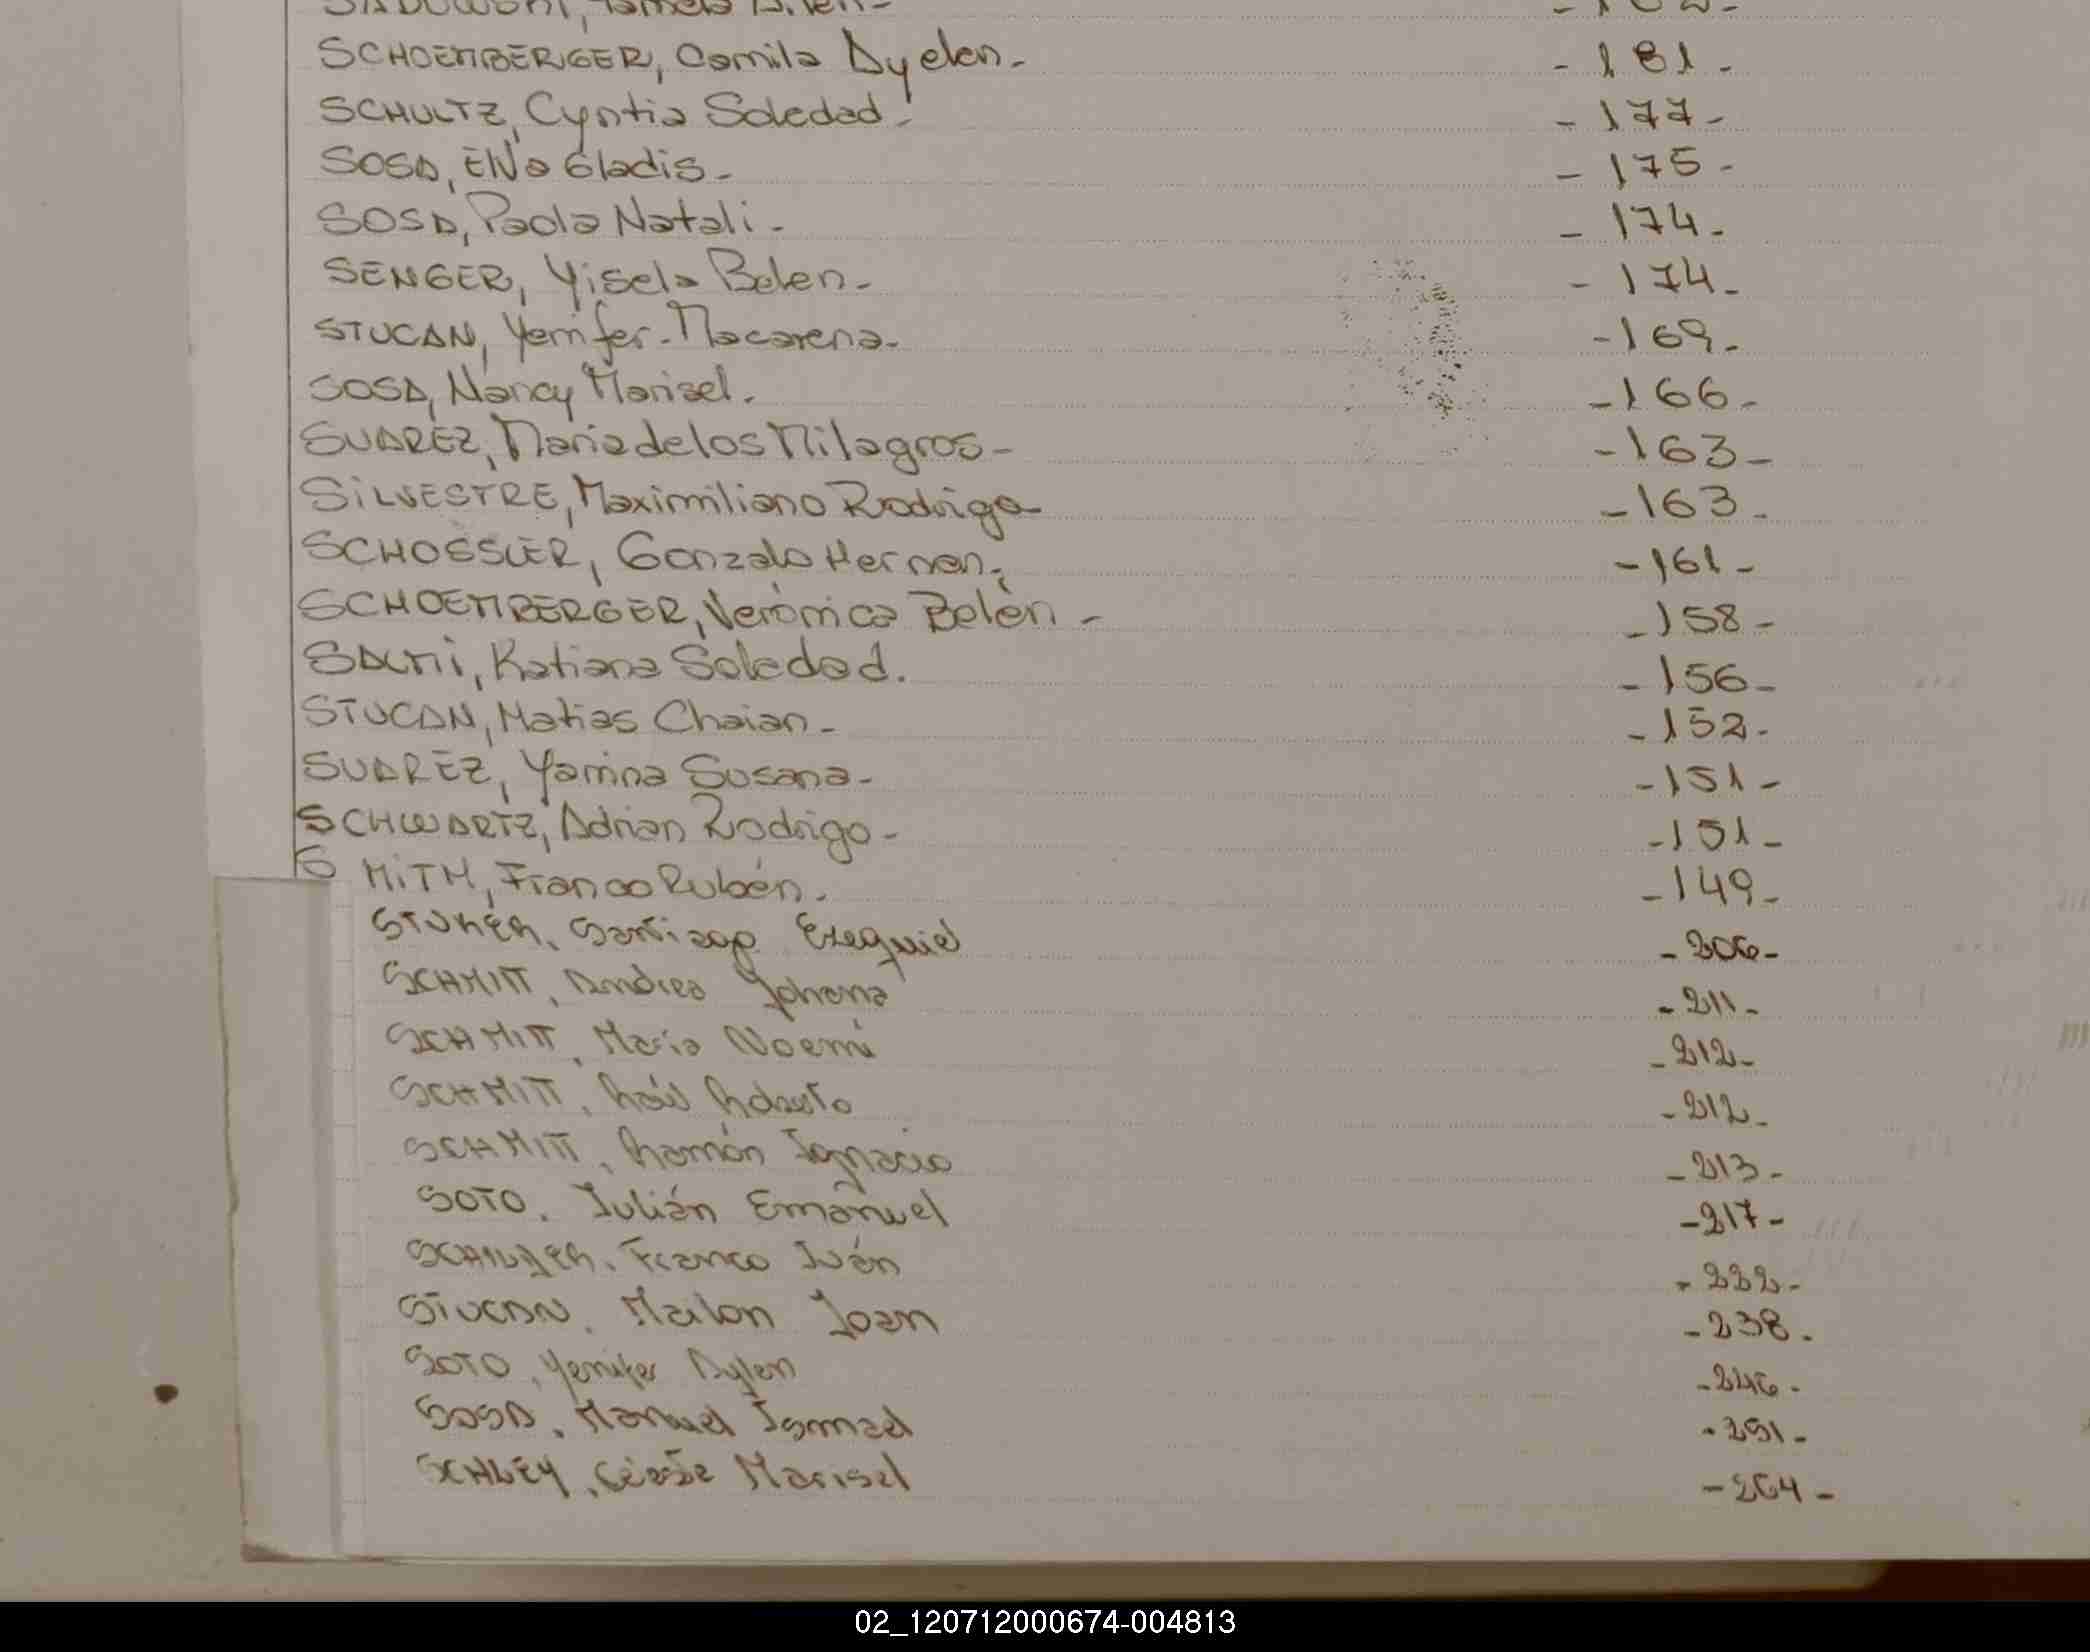 SCHOEMBERGER, Camila Ayelen. - 181 -
SCHULTZ, Cyntia Soledad. - 177 -
SOSA, Elva Gladis. - 175 -
SOSA, Paola Natali. - 174 -
SENGER, Yisela Belen. - 174 -
STUCAN, Yenifer Macarena. - 169 -
SOSA, Nancy Marisel. - 166 -
SUAREZ, Maria de los Milagros - - 163 -
SILVESTRE, Maximiliano Rodrigo - 163 -
SCHOSSLER, Gonzalo Hernan. - 161 -
SCHOEMBERGER, Verónica Belén - - 158 -
SALMI, Katiana Soledad. - 156 -
STUCAN, Matias Chaian - - 152 -
SUAREZ, Yamina Susana - - 151 -
SCHWARTZ, Adrian Rodrigo - - 151 -
SMITH, Franco Rubén. - 149 -
Santiago Ezequiel - 206 -
SCHMITT, Andrea Johana - 211 -
SCHMITT, Maria Noemi - 212 -
SCHMITT, Raúl Roberto - 212 -
SCHMITT, Ramón Ignacio - 213 -
SOTO, Julián Emanuel - 217 -
Franco Iván - 222 -
STUCAN, Mailon Joan - 238 -
SOTO, Yenifer Aylen - 246 -
SOSA, Manuel Ismael - 251 -
SCHLEY, Marisel - 264 -
02_120712000674-004813